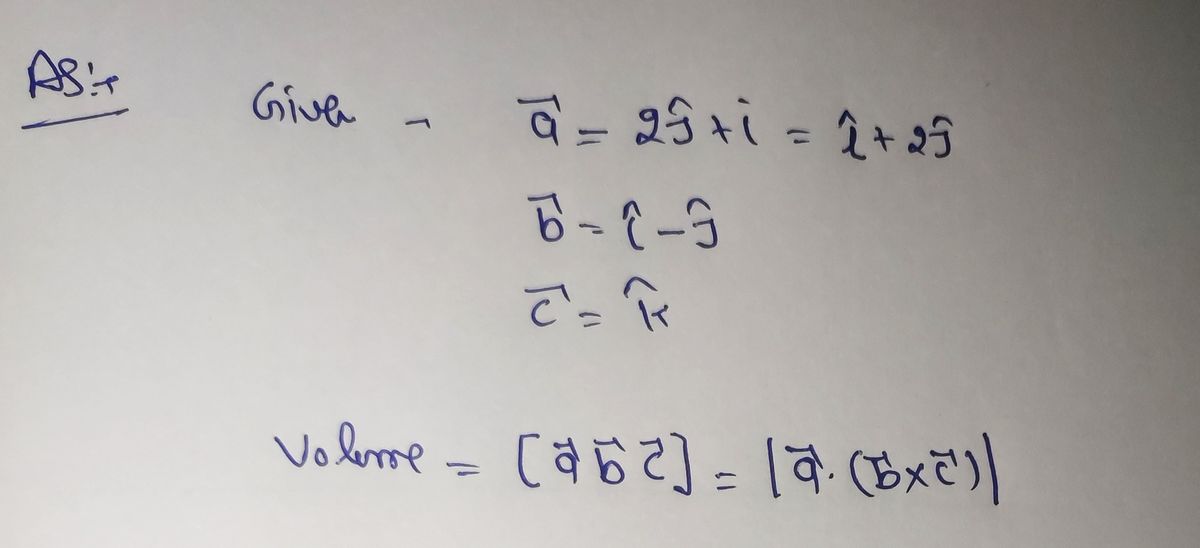 AS:→ Given - a⃗ = 2ĵ + i = î + 2ĵ
b⃗ = î - ĵ
c⃗ = k̂
Volume = [a⃗ b⃗ c⃗] = |a⃗. (b⃗×c⃗)|